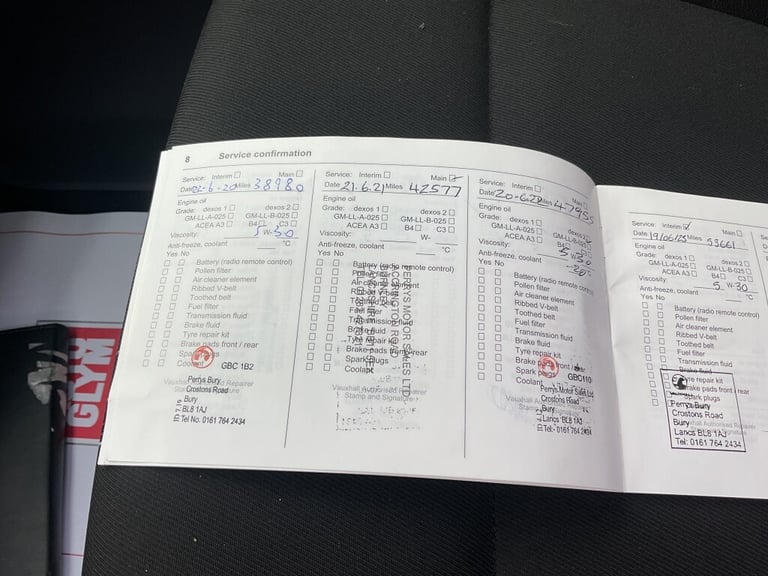 8 Service confirmation
Service: Interim Main
Date 22-6-20 Miles 38980
Engine oil
Grade: dexos 1 dexos 2
GM-LL-A-025 GM-LL-B-025
ACEA A3 B4 C3
Viscosity: 5 W-30
Anti-freeze, coolant °C
Yes No
Battery (radio remote control)
Pollen filter
Air cleaner element
Ribbed V-belt
Toothed belt
Fuel filter
Transmission fluid
Brake fluid
Tyre repair kit
Brake pads front / rear
Spark plugs
Coolant
GBC 1B2
Vauxhall Authorised Repairer
Perrys Bury
Crostons Road
Bury
BL8 1AJ
Tel No. 0161 764 2434
Service: Interim Main
Date 21.6.21 Miles 42577
Engine oil
Grade: dexos 1 dexos 2
GM-LL-A-025 GM-LL-B-025
ACEA A3 B4 C3
Viscosity: W-
Anti-freeze, coolant °C
Yes No
Battery (radio remote control)
Pollen filter
Air cleaner element
Ribbed V-belt
Toothed belt
Fuel filter
Transmission fluid
Brake fluid
Tyre repair kit
Brake pads front / rear
Spark plugs
Coolant
PERRYS MOTOR SALES LTD
ACCRINGTON ROAD
BURNLEY
Vauxhall Authorised Repairer
Stamp and Signature
Service: Interim Main
Date 20-6-22 Miles 47955
Engine oil
Grade: dexos 1 dexos 2
GM-LL-A-025 GM-LL-B-025
ACEA A3 B4 C3
Viscosity: 5 W-30
Anti-freeze, coolant °C
Yes No
Battery (radio remote control)
Pollen filter
Air cleaner element
Ribbed V-belt
Toothed belt
Fuel filter
Transmission fluid
Brake fluid
Tyre repair kit
Brake pads front / rear
Spark plugs
Coolant
GBC110
Perrys Motor Sales Ltd
Crostons Road
Bury
Lancs BL8 1AJ
Tel: 0161 764 2434
Service: Interim Main
Date 19/06/23 Miles 53661
Engine oil
Grade: dexos 1 dexos 2
GM-LL-A-025 GM-LL-B-025
ACEA A3 B4 C3
Viscosity: 5 W-30
Anti-freeze, coolant °C
Yes No
Battery (radio remote control)
Pollen filter
Air cleaner element
Ribbed V-belt
Toothed belt
Fuel filter
Transmission fluid
Brake fluid
Tyre repair kit
Brake pads front / rear
Spark plugs
Perrys Bury
Crostons Road
Bury
Lancs BL8 1AJ
Tel: 0161 764 2434
GLYM